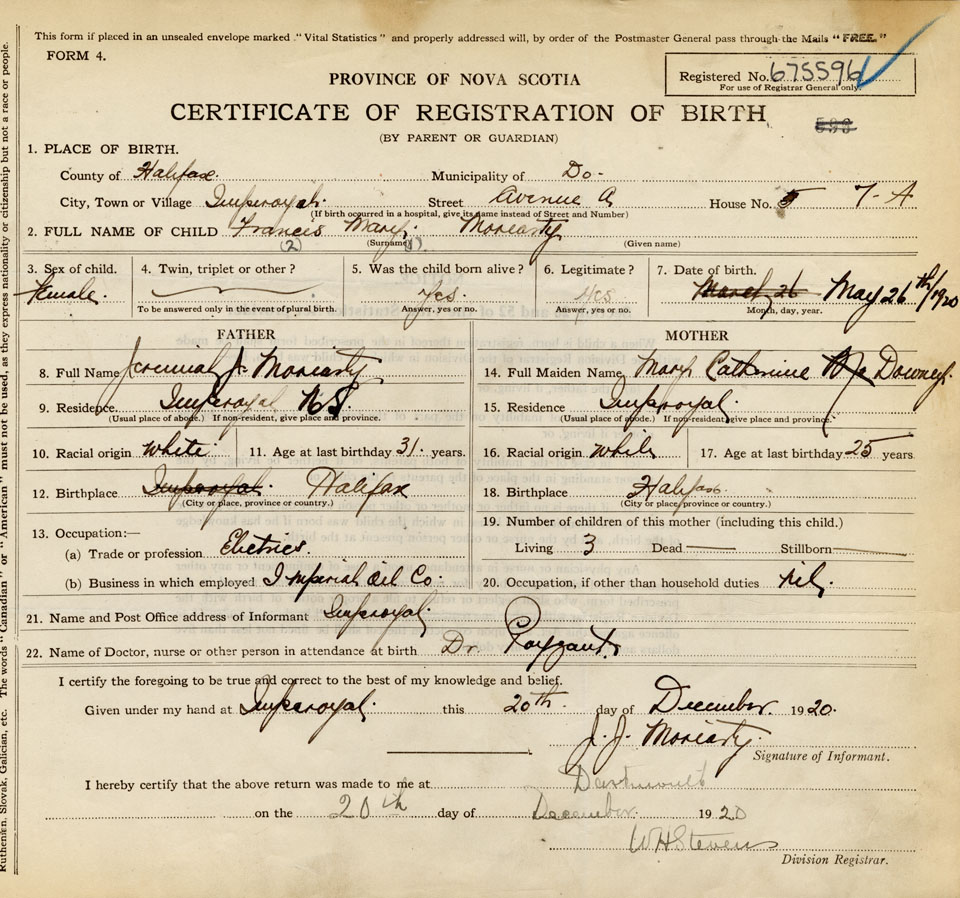 This form if placed in an unsealed envelope marked "Vital Statistics" and properly addressed will, by order of the Postmaster General pass through the Mails "FREE."
FORM 4.
Registered No. 675596
For use of Registrar General only.
PROVINCE OF NOVA SCOTIA
CERTIFICATE OF REGISTRATION OF BIRTH
(BY PARENT OR GUARDIAN)
1. PLACE OF BIRTH.
County of Halifax Municipality of Do-
City, Town or Village Imperoyal. Street Avenue A House No. 5 7-A
(If birth occurred in a hospital, give its name instead of Street and Number)
2. FULL NAME OF CHILD Francis Mary Moriarty
(2) (Surname) (1) (Given name)
3. Sex of child. 4. Twin, triplet or other? 5. Was the child born alive? 6. Legitimate? 7. Date of birth.
Female. Yes. Yes March 26 May 26th/1920
To be answered only in the event of plural birth. Answer, yes or no. Answer, yes or no. Month, day, year.
FATHER MOTHER
8. Full Name Jeremiah J. Moriarty 14. Full Maiden Name Mary Catherine Downey.
9. Residence Imperoyal NS 15. Residence Imperoyal.
(Usual place of abode.) If non-resident, give place and province. (Usual place of abode.) If non-resident, give place and province.
10. Racial origin white 11. Age at last birthday 31. years. 16. Racial origin white 17. Age at last birthday 25 years
12. Birthplace Imperoyal. Halifax 18. Birthplace Halifax.
(City or place, province or country.) (City or place, province or country.)
13. Occupation:— 19. Number of children of this mother (including this child.)
(a) Trade or profession Electrics. Living 3 Dead — Stillborn —
(b) Business in which employed Imperial Oil Co. 20. Occupation, if other than household duties Nil.
21. Name and Post Office address of Informant Imperoyal.
22. Name of Doctor, nurse or other person in attendance at birth Dr. Payzant.
I certify the foregoing to be true and correct to the best of my knowledge and belief.
Given under my hand at Imperoyal. this 20th. day of December. 1920.
J. J. Moriarty.
Signature of Informant.
I hereby certify that the above return was made to me at Dartmouth
on the 20th day of December. 1920
WH Stevens
Division Registrar.
Ruthenian, Slovak, Galician, etc. The words "Canadian" or "American" must not be used, as they express nationality or citizenship but not a race or people.